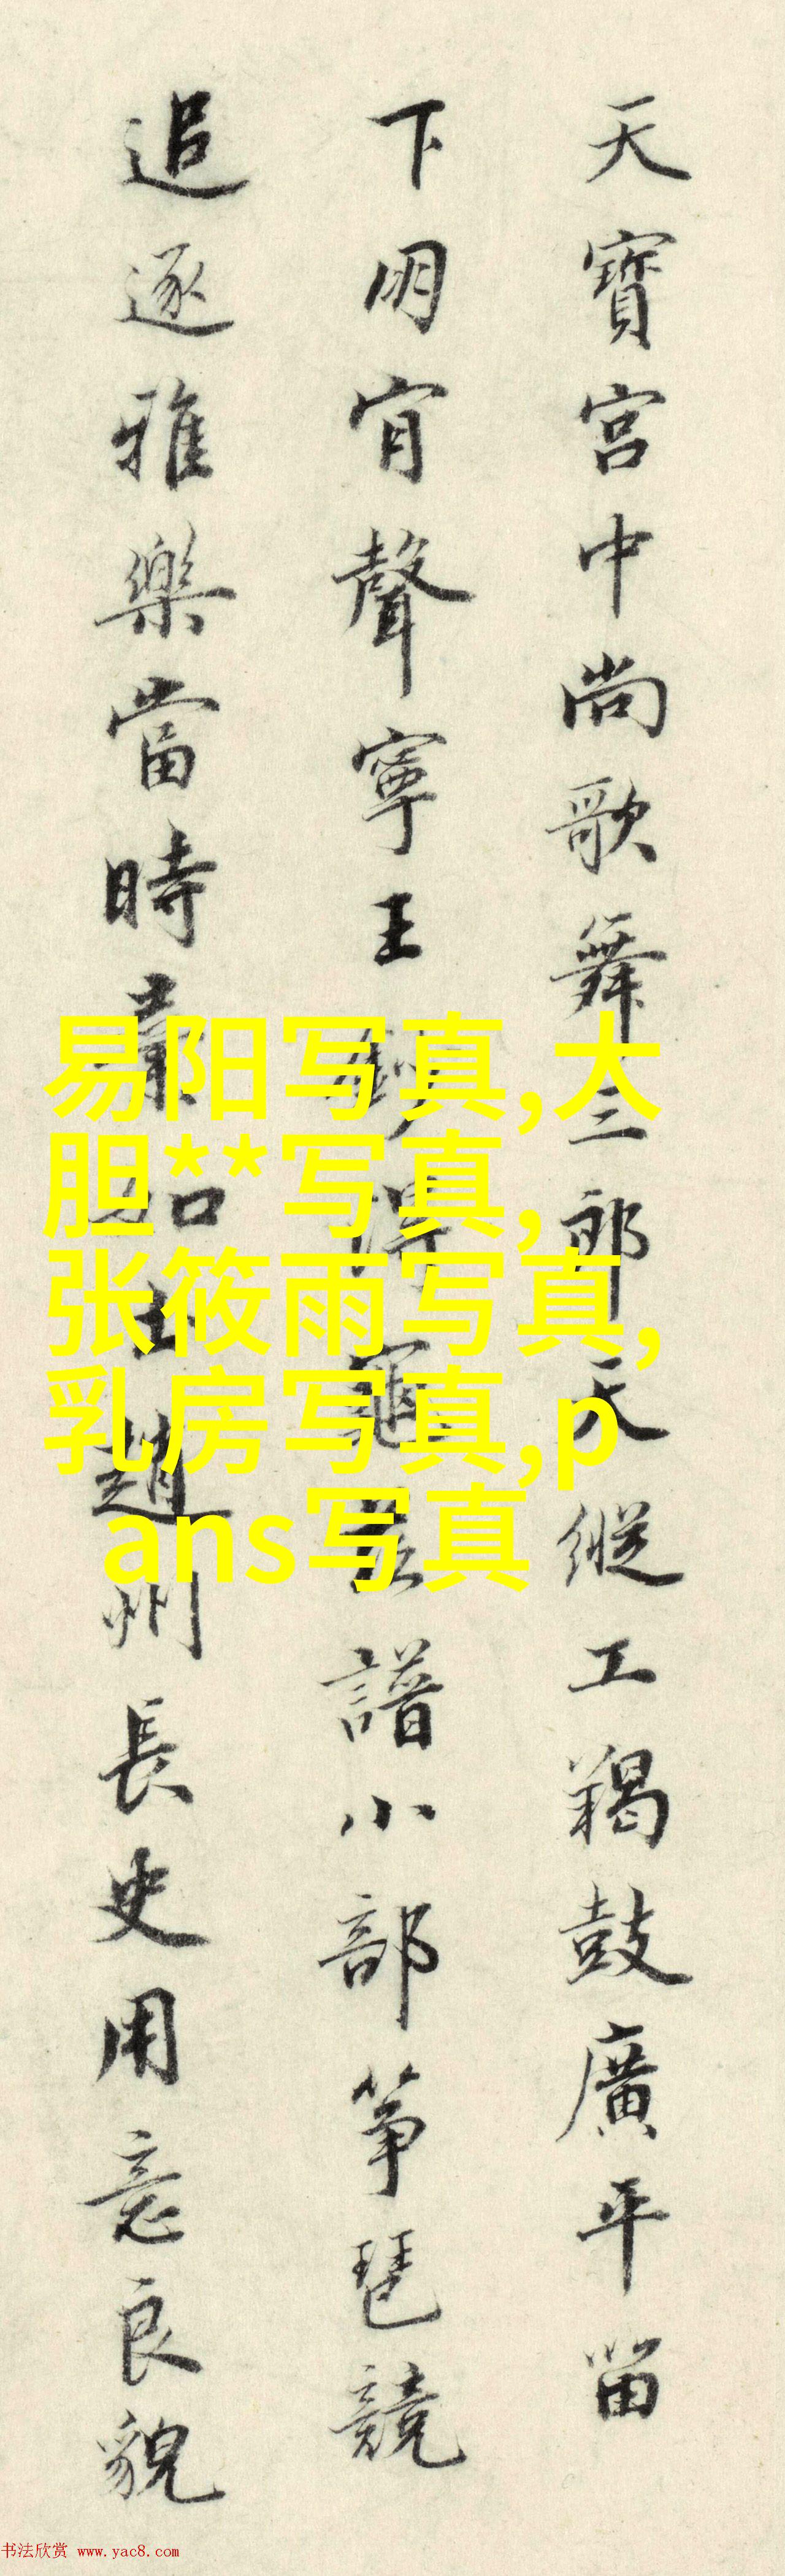 天寶宮中尚歌舞三郎天縱工羯鼓廣平留
下明肎聲寧王解得龜茲譜小部箏琶競
追逐雅樂當時棄如土趙州長史用意良貌
易阳写真,大
胆**写真,
张筱雨写真,
乳房写真,p
ans写真
书法欣赏 www.yac8.com